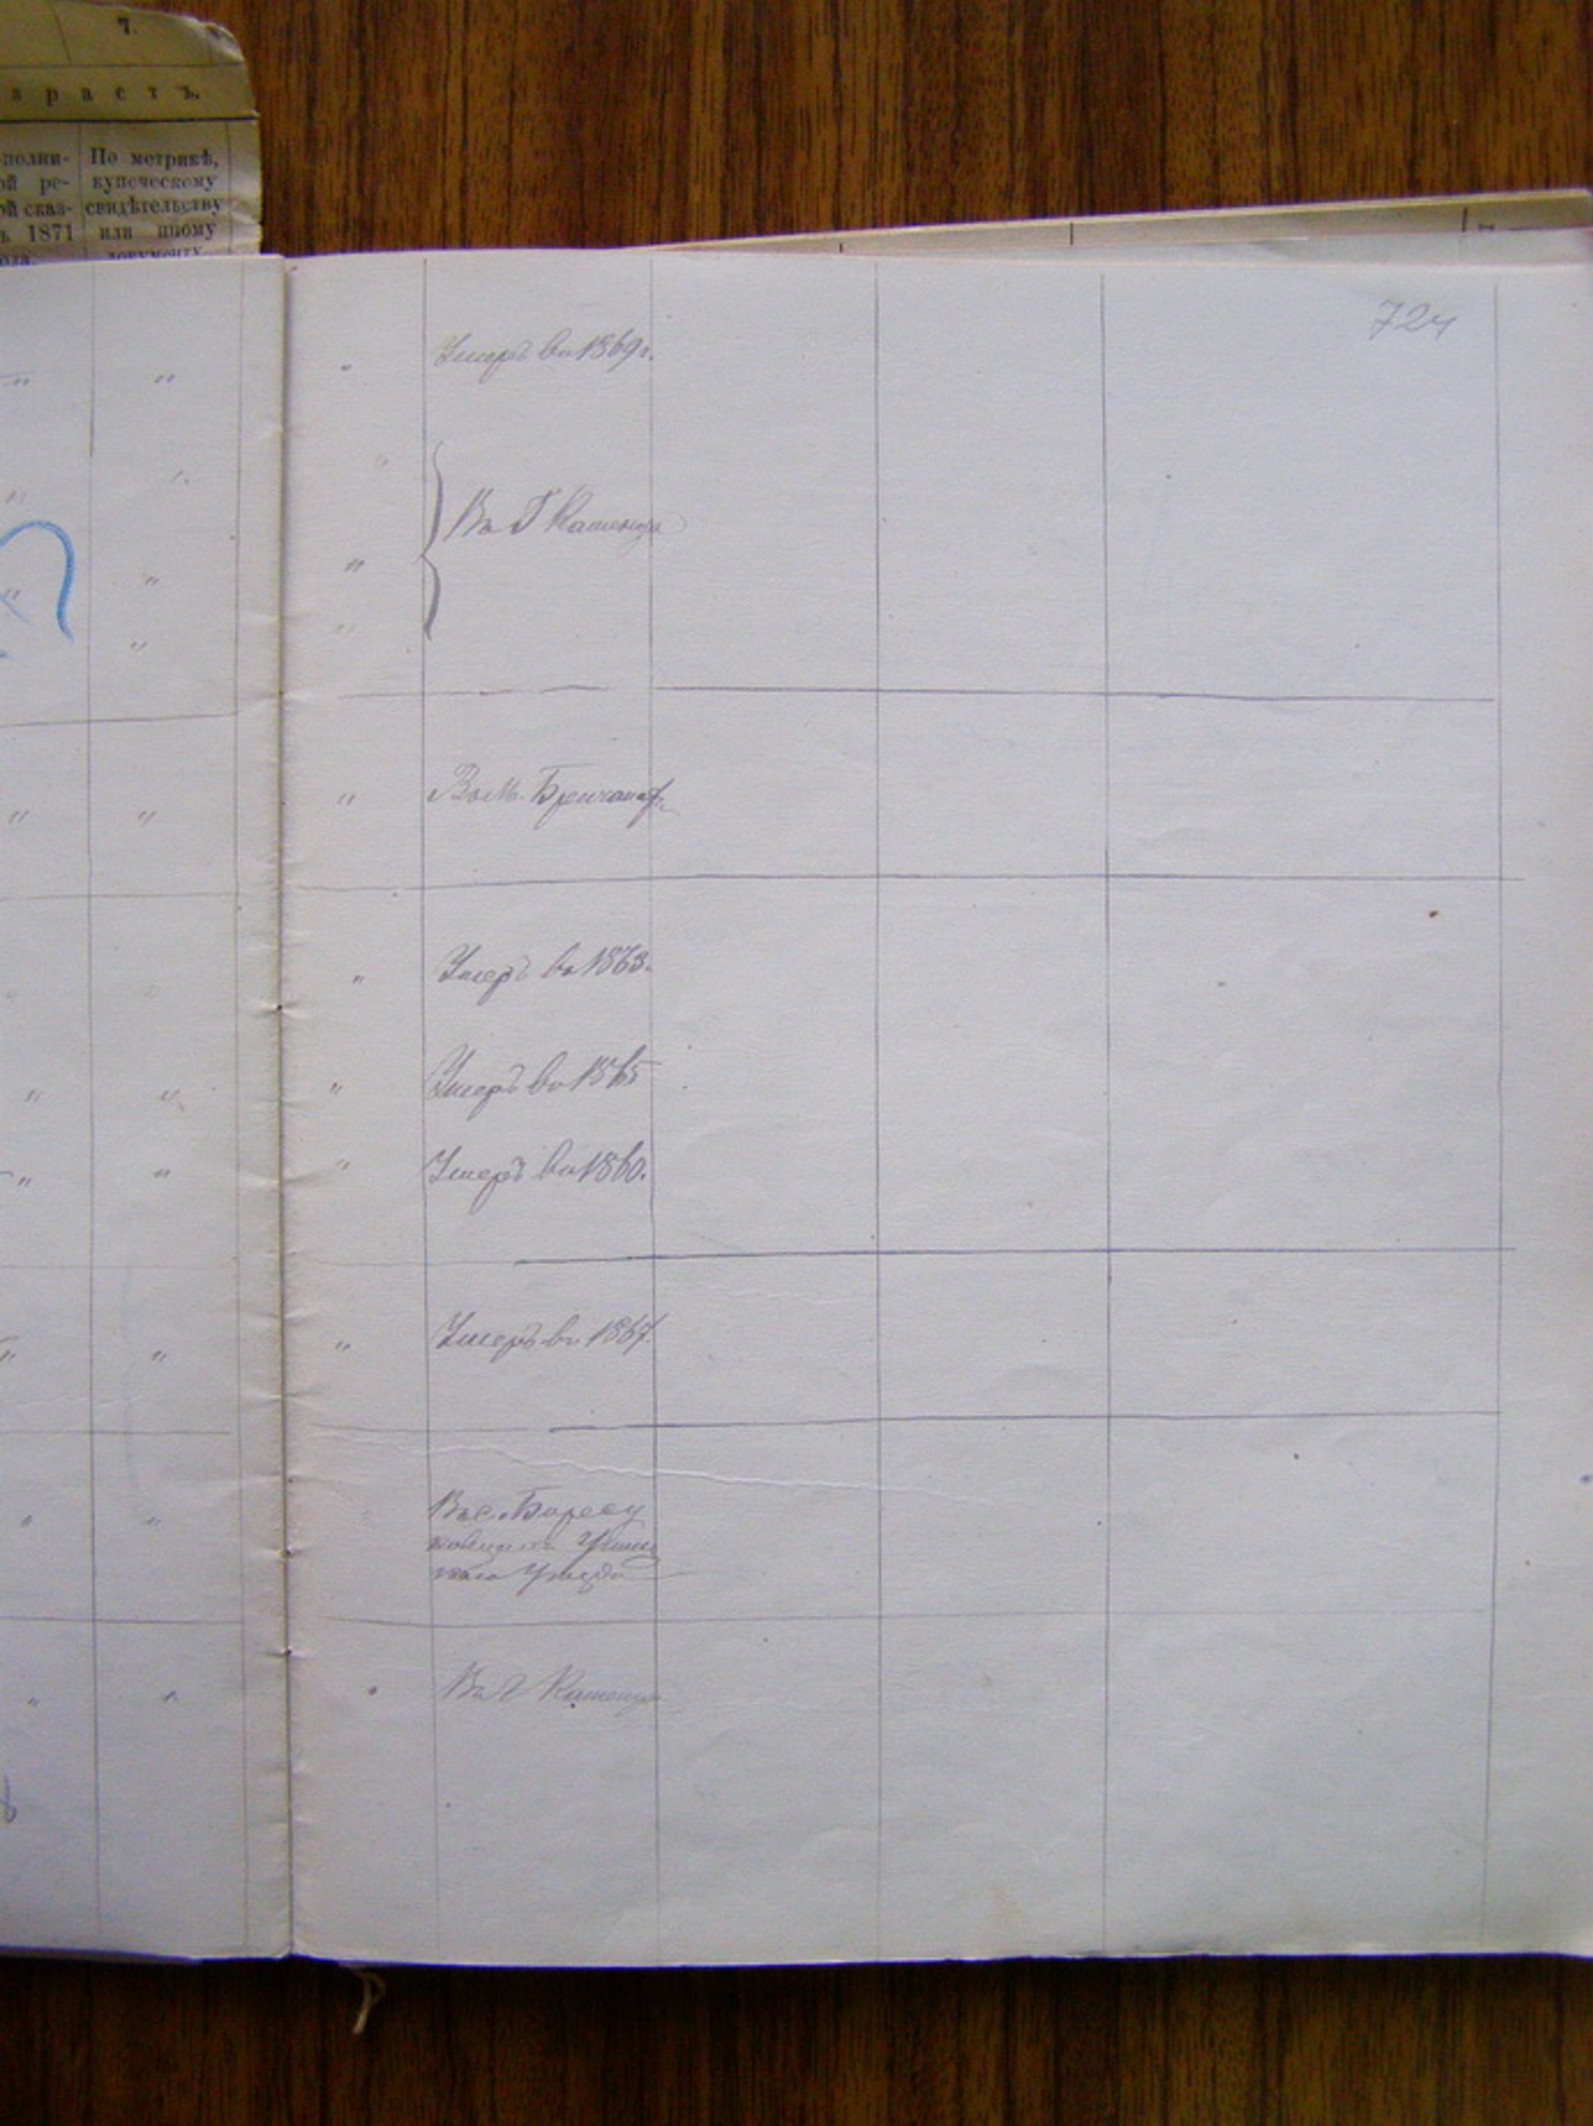 7.
зрастъ.
полни-
ой ре-
ой сказ-
ъ 1871
ода.
По метрикѣ,
купеческому
свидѣтельству
или иному
документу.
724
Умеръ въ 1869 г.
Въ Г Каменцѣ
Въ М. Бричанахъ
Умеръ въ 1863.
Умеръ въ 1865
Умеръ въ 1860.
Умеръ въ 1867.
Въ с. Борсу
кого Уѣзда
Въ Г Каменцѣ